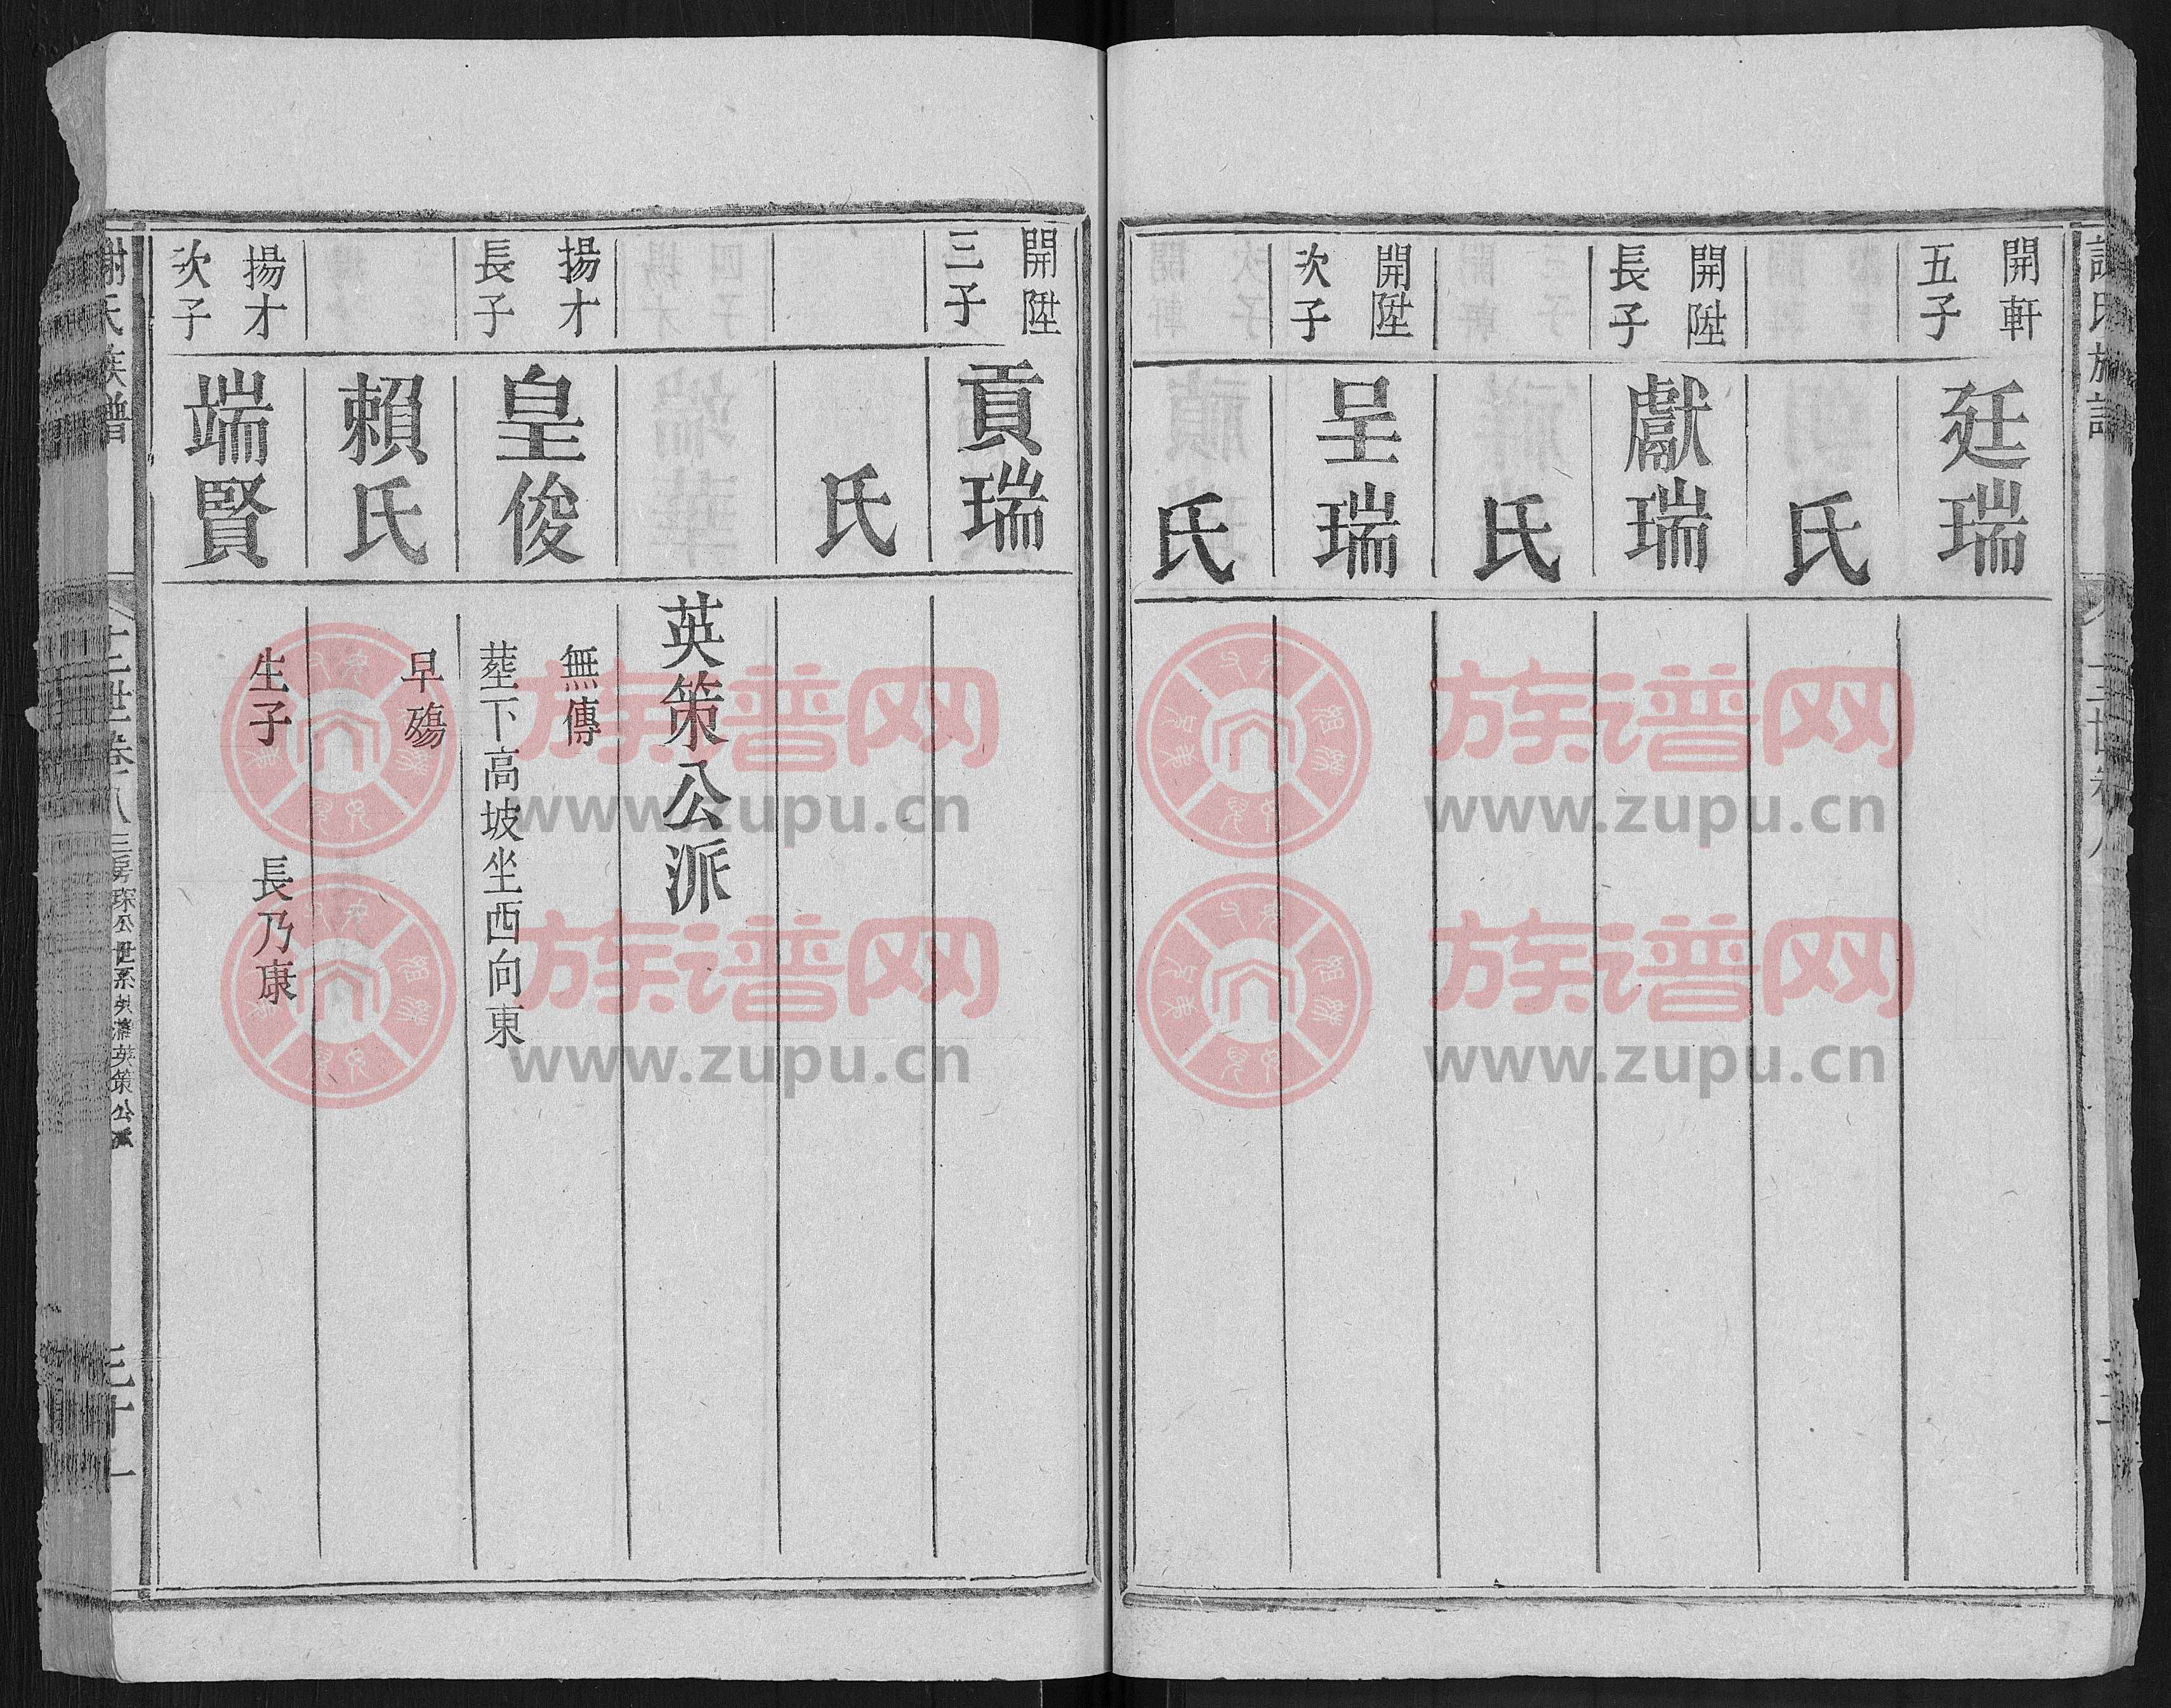 開軒
五子
廷瑞
氏
開陞
長子
獻瑞
氏
開陞
次子
呈瑞
氏
開陞
三子
貢瑞
氏
英策公派
揚才
長子
皇俊
無傳
葬下高坡坐西向東
賴氏
早殤
揚才
次子
端賢
生子 長乃康
謝氏族譜
十三世卷八 三房琛公世系 英策公派
族谱网
www.zupu.cn
族谱网
www.zupu.cn
族谱网
www.zupu.cn
族谱网
www.zupu.cn